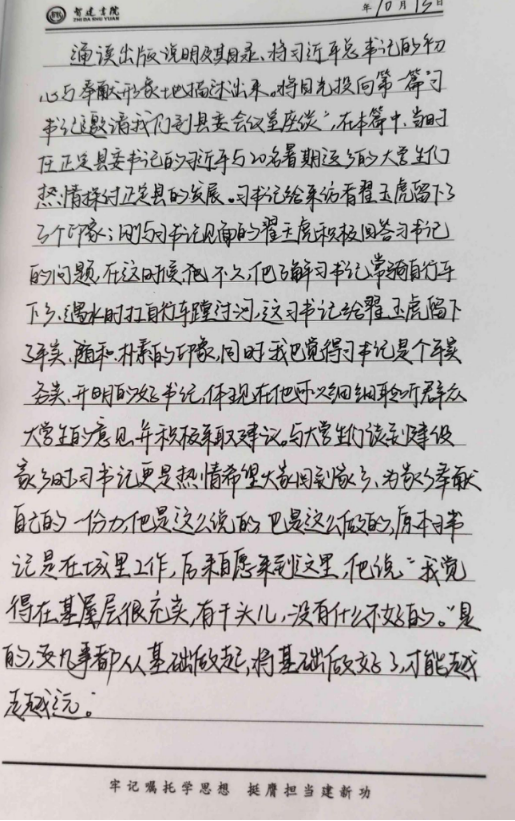 智达书院
ZHI DA SHU YUAN
年10月15日
通读出版说明及其目录、将习近平总书记的初
心与奉献形象地描述出来。将目光投向第一篇"习
书记邀请我们到县委会议室座谈",在本篇中,当时
任正定县委书记的习近平与20名暑期返乡的大学生们
热情探讨正定县的发展。习书记给来访者翟玉虎留下了
三个印象:刚与习书记见面的翟玉虎积极回答习书记
的问题,在这时候,他不久,他了解习书记常骑自行车
下乡、遇水时扛自行车蹚过河,这习书记给翟玉虎留下
了军类、随和、朴素的印象,同时我也觉得习书记是个
务类、开明的好书记,体现在他可以细细聆听群众
大学生的意见,并积极采取建议,与大学生们谈到建设
家乡时习书记更是热情希望大家回到家乡、为家乡奉献
自己的一份力,他是这么说的,也是这么做的,原本习书
记是在城里工作,后来自愿来到这里,他说"我觉
得在基层很充实,有干头儿,没有什么不好的。"是
的,凡事都从基础做起,将基础做好了,才能越
走越远。
牢记嘱托学思想 挺膺担当建新功